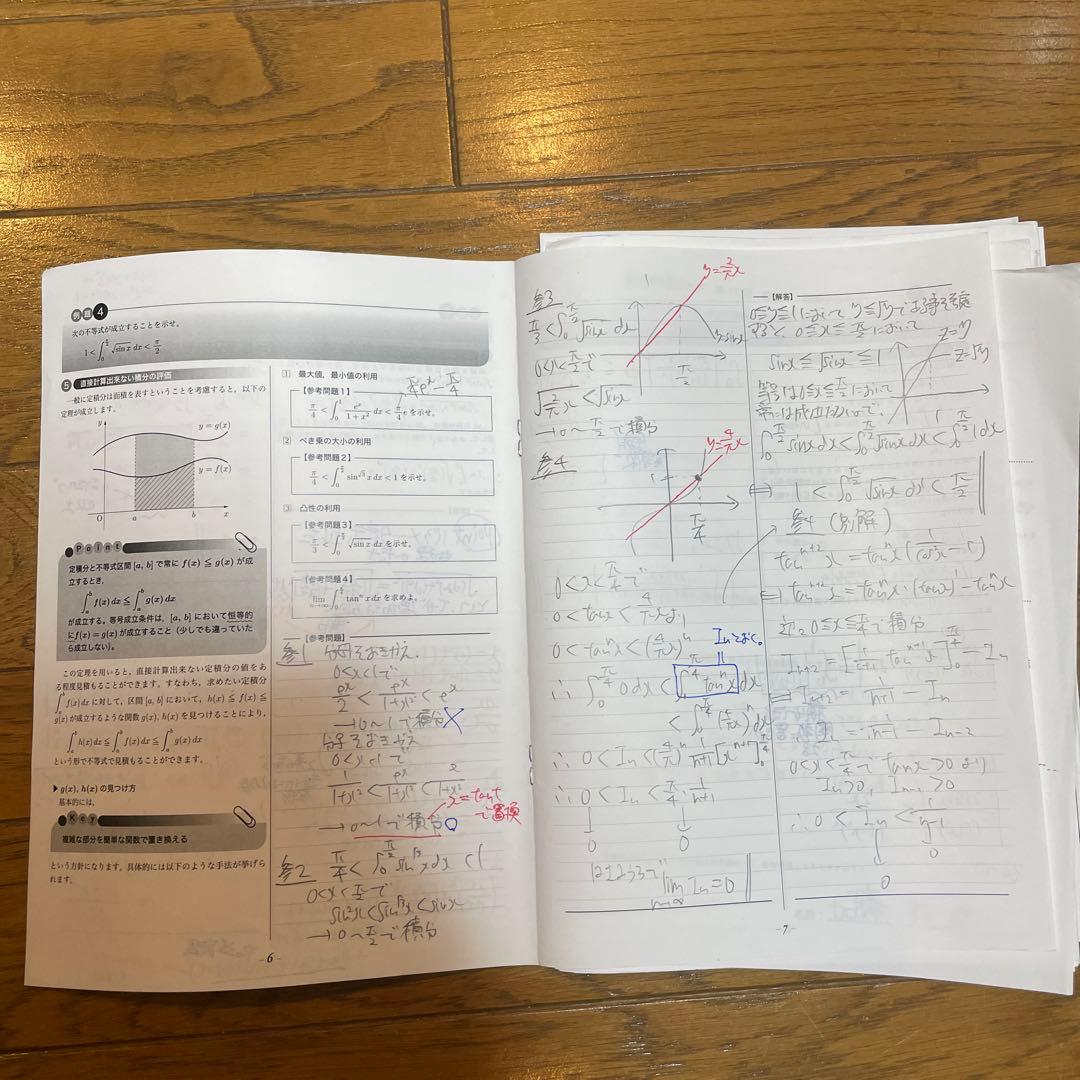 例題4
次の不等式が成立することを示せ。
1 < ∫₀^{π/2} √sin x dx < π/2
5 直接計算出来ない積分の評価
一般に定積分は面積を表すということを考慮すると，以下の
定理が成立します。
y
y = g(x)
y = f(x)
O a b x
Point
定積分と不等式区間 [a, b] で常に f(x) ≦ g(x) が成
立するとき，
∫ₐᵇ f(x) dx ≦ ∫ₐᵇ g(x) dx
が成立する。等号成立条件は，[a, b] において恒等的
に f(x) = g(x) が成立すること（少しでも違っていた
ら成立しない）。
この定理を用いると，直接計算出来ない定積分の値をあ
る程度見積もることができます。すなわち，求めたい定積分
∫ₐᵇ f(x) dx に対して，区間 [a, b] において，h(x) ≦ f(x) ≦
g(x) が成立するような関数 g(x), h(x) を見つけることにより，
∫ₐᵇ h(x) dx ≦ ∫ₐᵇ f(x) dx ≦ ∫ₐᵇ g(x) dx
という形で不等式で見積もることができます。
▶ g(x), h(x) の見つけ方
基本的には，
Key
複雑な部分を簡単な関数で置き換える
という方針になります。具体的には以下のような手法が挙げら
れます。
① 最大値，最小値の利用
【参考問題1】
π/4 < ∫₀¹ eˣ/(1+x²) dx < π/4 e を示せ。
② べき乗の大小の利用
【参考問題2】
π/4 < ∫₀^{π/2} sin^{√3} x dx < 1 を示せ。
③ 凸性の利用
【参考問題3】
π/3 < ∫₀^{π/2} √sin x dx を示せ。
【参考問題4】
lim_{n→∞} ∫₀^{π/4} tanⁿ x dx を求めよ。
【参考問題】
参1 分母をおきかえ
0<x<1で
eˣ/2 < eˣ/(1+x²) < eˣ
→0～1で積分 ×
分子をおきかえ
0<x<1で
→0～1で積分○
x=tan t
で置換
参2 π/4 < ∫₀^{π/2} sin^{√3} x dx < 1
0<x<π/2 で
sin²x < sin^{√3} x < sin x
→0～π/2で積分
- 6 -
参3
π/3 < ∫₀^{π/2} √sin x dx
0<x<π/2で
√(2/π x) < √sin x
→0～π/2で積分
1
y=2/π x
y=sin x
π/2
参4
y=4/π x
1
π/4
0<x<π/4で
0<tan x<4/π xより
0<tanⁿx<(4/π x)ⁿ
Iₙとおく。
∴ ∫₀^{π/4} 0dx < ∫₀^{π/4} tanⁿx dx
< ∫₀^{π/4} (4/π x)ⁿ dx
∴ 0 < Iₙ < (4/π)ⁿ 1/(n+1) [xⁿ⁺¹]₀^{π/4}
∴ 0 < Iₙ < π/4 · 1/(n+1)
↓ ↓
0 0
はさみうちで lim_{n→∞} Iₙ=0
【解答】
sin x ≦ √sin x ≦ 1
等号は0≦x≦π/2において
常には成立しないので、
∫₀^{π/2} sin x dx < ∫₀^{π/2} √sin x dx < ∫₀^{π/2} 1 dx
⇔ 1 < ∫₀^{π/2} √sin x dx < π/2
z=y
z=√y
1
参4 (別解)
tanⁿ⁺² x = tanⁿ x (1/cos²x − 1)
⇔ tanⁿ⁺² x = tanⁿ x · (tan x)' − tanⁿ x
辺々0≦x≦π/4で積分
Iₙ₊₂ = [1/(n+1) tanⁿ⁺¹ x]₀^{π/4} − Iₙ
⇔ Iₙ₊₂ = 1/(n+1) − Iₙ
Iₙ = 1/(n−1) − Iₙ₋₂
0<x<π/4で tan x>0より
Iₙ>0, Iₙ₋₂>0
∴ 0 < Iₙ < 1/(n−1)
↓ ↓
0 0
- 7 -